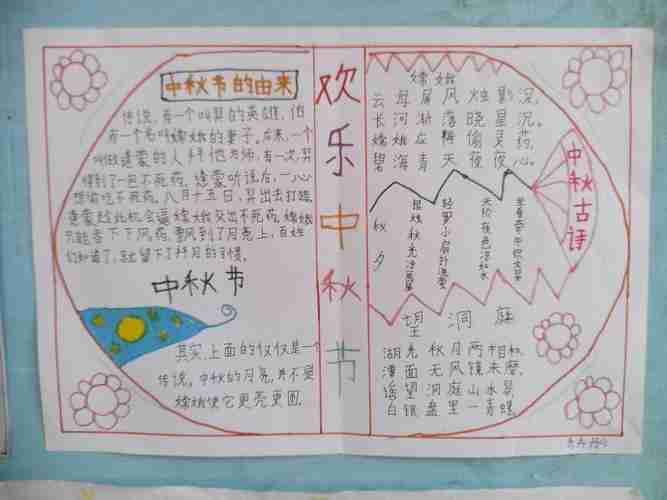 中秋节的由来
传说，有一个叫羿的英雄，他
有一个名叫嫦娥的妻子。后来，一个
叫做逢蒙的人拜他为师，有一次，羿
得到了一包不死药，逢蒙听说后，一心
想偷吃不死药，八月十五日，羿出去打猎，
逢蒙趁此机会逼嫦娥交出不死药，嫦娥
只能吞下不死药，飘到了月亮上，百姓
们知道了，就留下了拜月的习惯。
中秋节
其实，上面的仅仅是一个
传说，中秋的月亮，并不是
嫦娥使它更亮更圆
欢乐中秋节
嫦娥
云母屏风烛影深，
长河渐落晓星沉。
嫦娥应悔偷灵药，
碧海青天夜夜心。
中秋古诗
秋夕
银烛秋光冷画屏
轻罗小扇扑流萤
天阶夜色凉如水
坐看牵牛织女星
望洞庭
湖光秋月两相和
潭面无风镜未磨
遥望洞庭山水
白银盘里一青螺